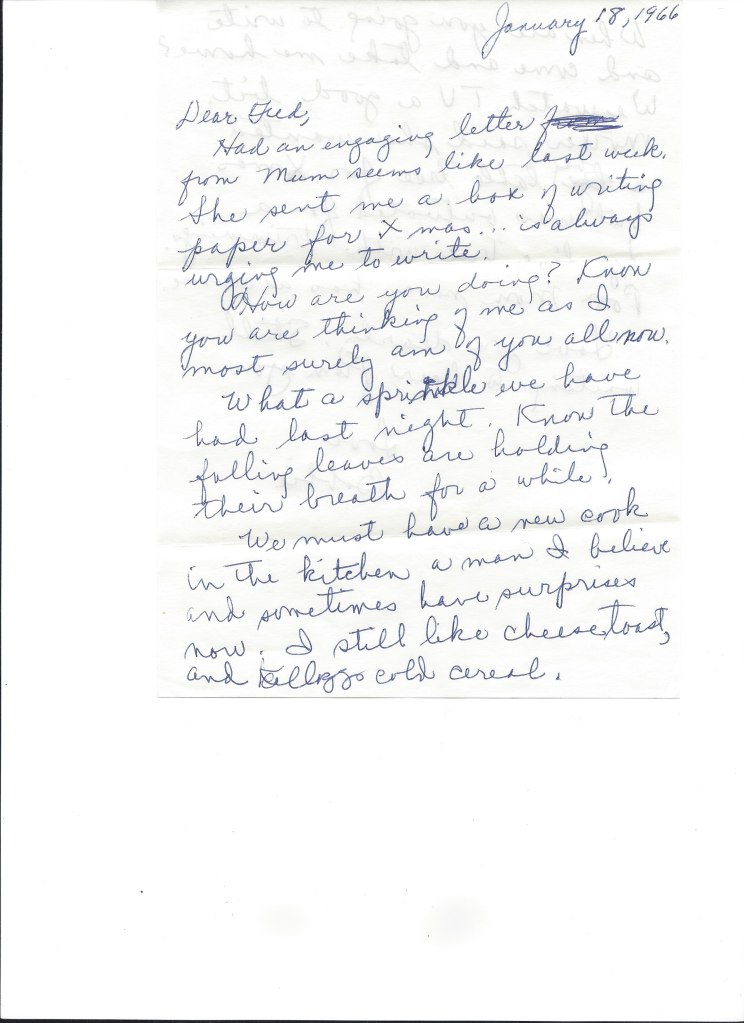 January 18, 1966
Dear Fred,
Had an engaging letter from
from Mum seems like last week.
She sent me a box of writing
paper for X mas... is always
urging me to write.
How are you doing? Know
you are thinking of me as I
most surely am of you all now.
What a sprinkle we have
had last night. Know the
falling leaves are holding
their breath for a while.
We must have a new cook
in the kitchen a man I believe
and sometimes have surprises
now. I still like cheese toast,
and Kelloggs cold cereal.